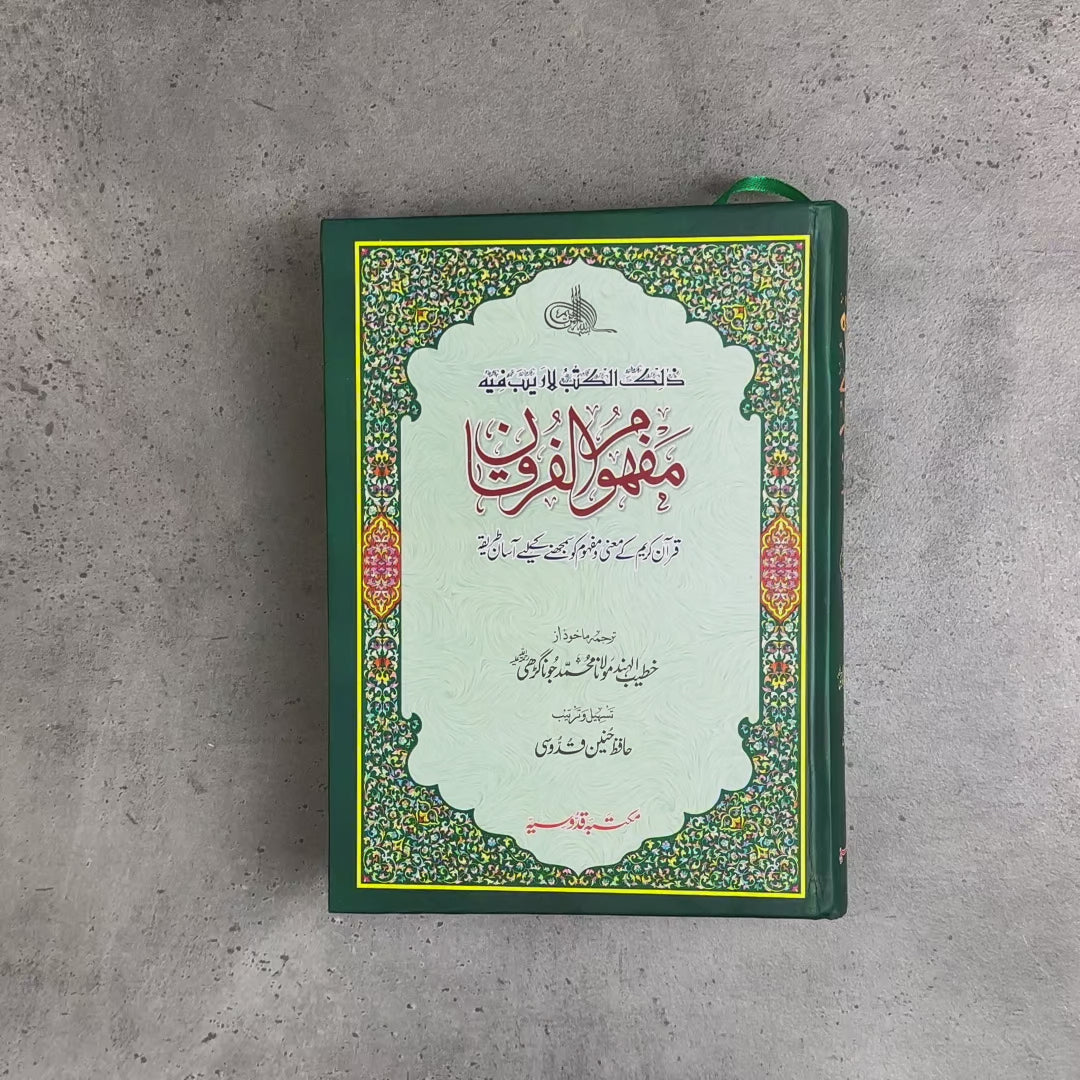 ذلک الکتب لا ریب فیه
مفہوم الفرقان
قرآن کریم کے معنی و مفہوم کو سمجھنے کیلئے آسان طریقہ
ترجمہ ماخوذ از
خطیب الہند مولانا محمد جوناگڑھی
تسہیل و ترتیب
حافظ حنین قدوسی
مکتبہ قدوسیہ